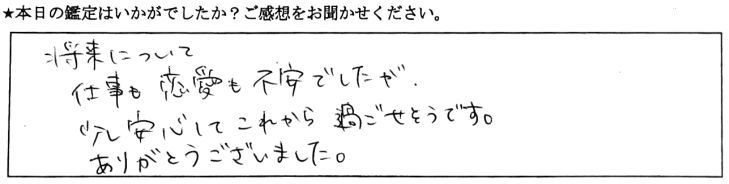 ★本日の鑑定はいかがでしたか？ご感想をお聞かせください。
将来について
仕事も恋愛も不安でしたが、
少し安心してこれから過ごせそうです。
ありがとうございました。